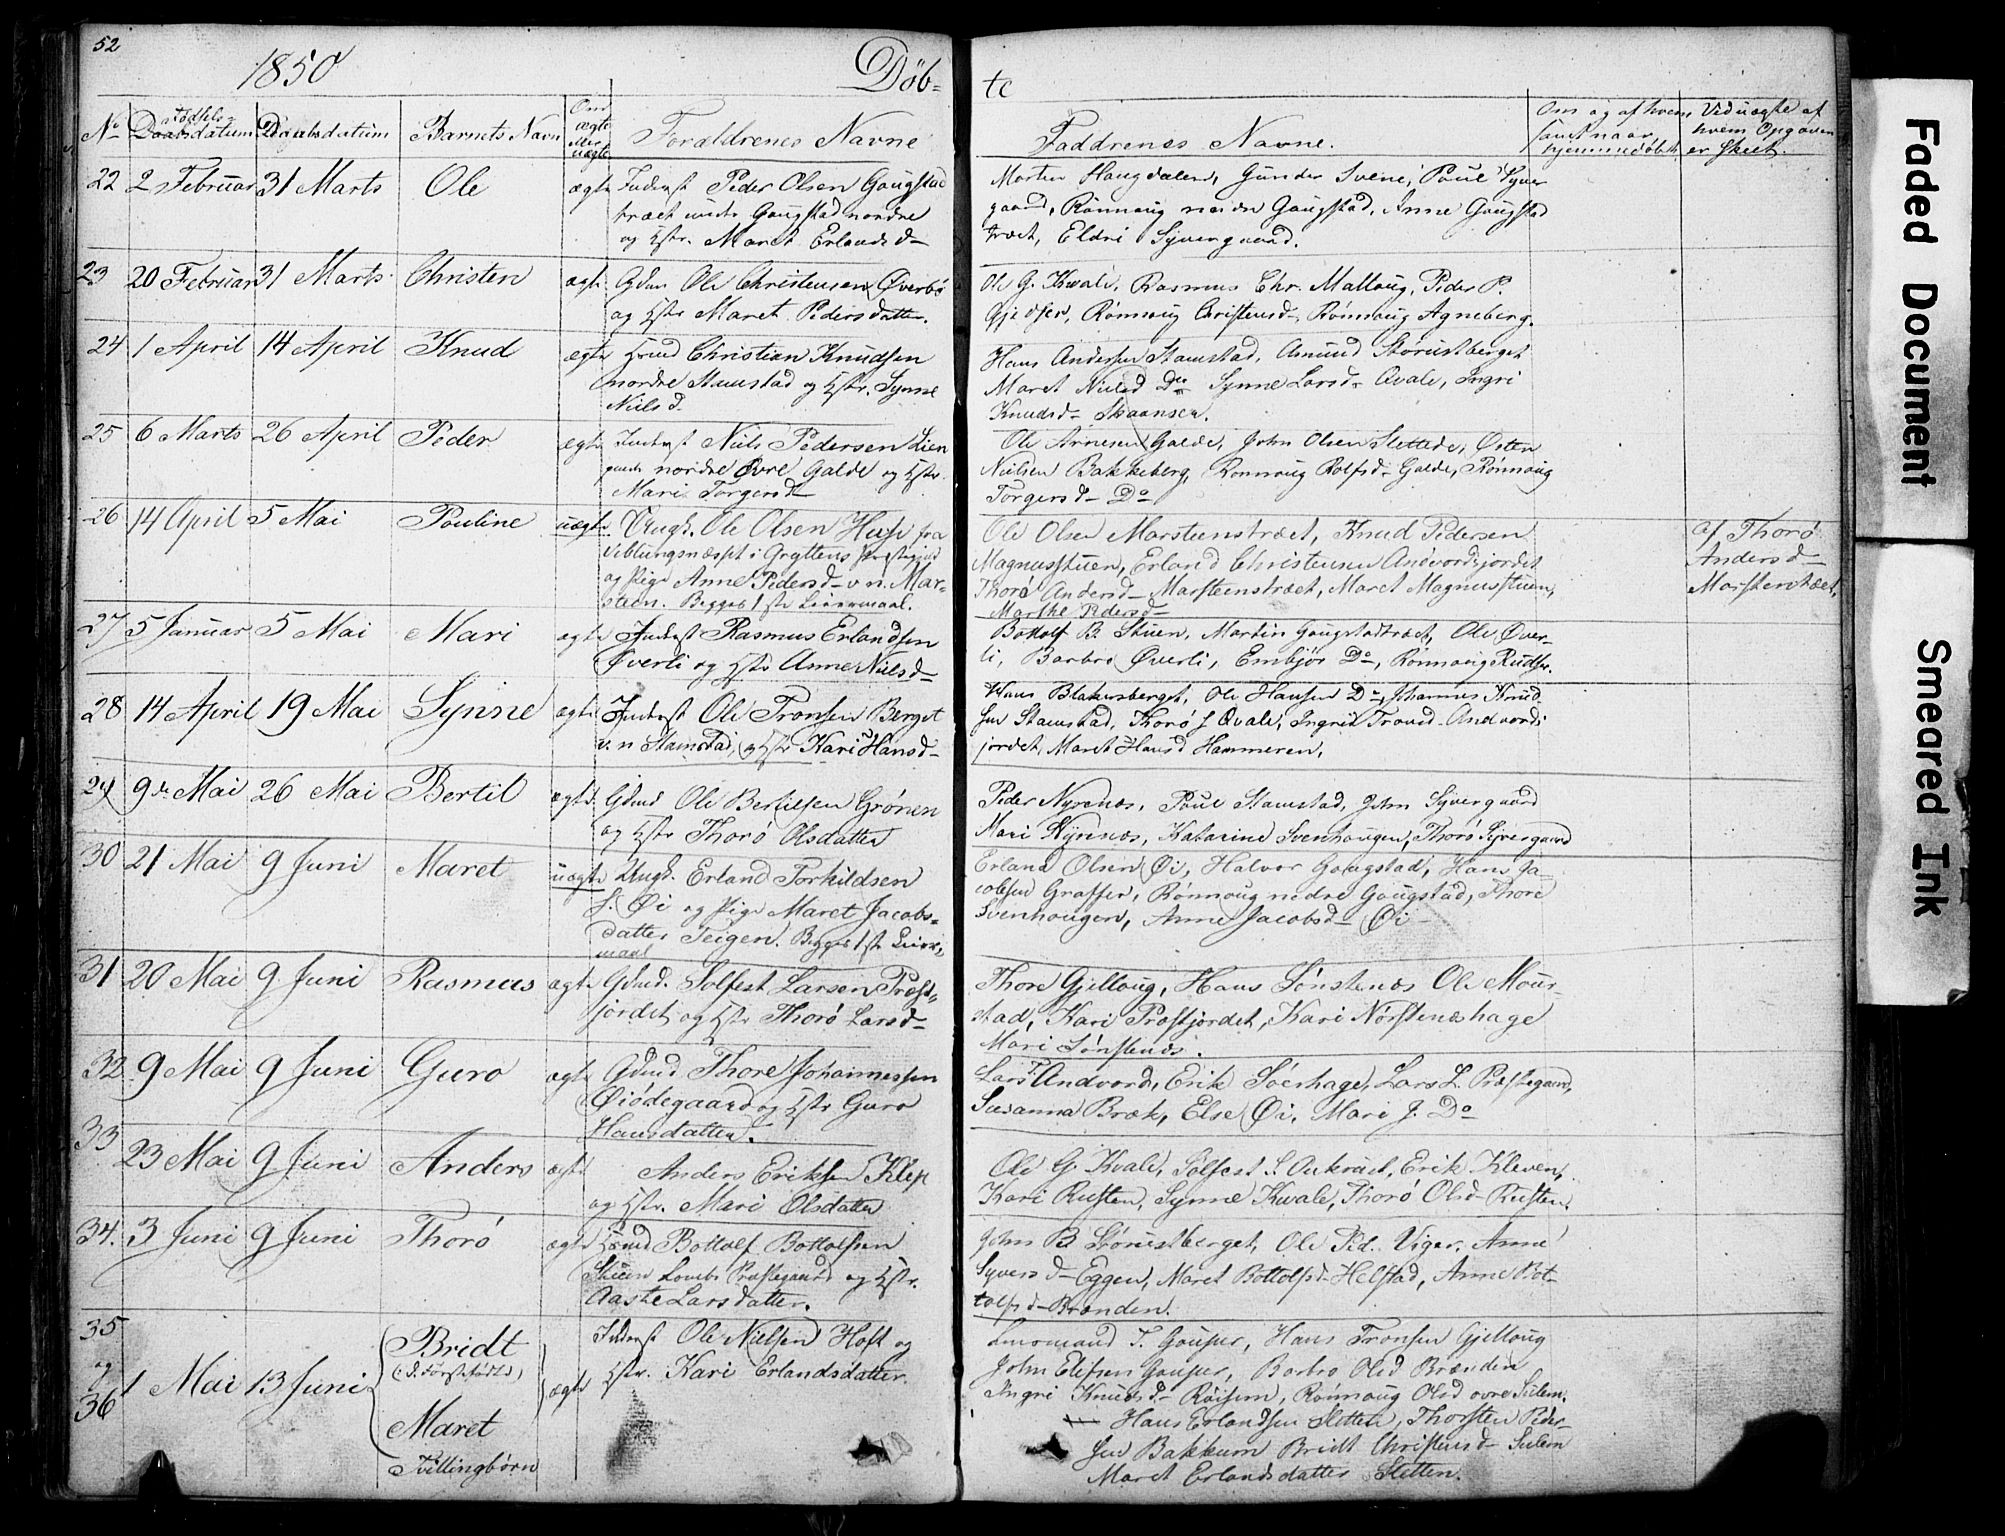 52
1850
Døb-
te
No
Fødsels-
Daabsdatum
Daabsdatum
Barnets Navn
Om
ægte
eller
uægte
Forældrenes Navne
Faddrenes Navne.
Om og af hvem,
samt naar
hjemmedøbt
Ved uægte af
hvem Opgaven
er skeet.
22 2 Februar 31 Marts Ole ægte Inderst Peder Olsen Gougstad
træet under Gougstad nordre
og Hstr. Maret Erlandsd-
Morten Haugdalen, Gunder Svene, Poul Syver
gaard, Rønnoug nedre Gougstad, Anne Gougstad
træet, Eldri Syvergaard.
23 20 Februar 31 Marts Christen ægte Gdmd Ole Christensen Øverbø
og Hstr Maret Pedersdatter.
Ole G. Kvale, Rasmus Chr. Malloug, Peder P.
Gjedser, Rønnoug Christensd-, Rønnoug Agneberg.
24 1 April 14 April Knud ægte Hmd Christian Knudsen
nordre Stamstad og Hstr. Synne
Nielsd.
Hans Andersen Stamstad, Amund Storustberget
Maret Nielsd Do Synne Larsd- Qvale, Ingri
Knudsd- Skaansen.
25 6 Marts 26 April Peder ægte Inderst Niels Pedersen Lien
nordre Øvre Galde og Hstr.
Mari Torgersd-
Ole Arnesen Galde, John Olsen Slettede, Østen
Nielsen Bakkeberg, Rønnoug Rolfsd- Galde, Rønnoug
Torgersd- Do
26 14 April 5 Mai Pouline uægte Ungk. Ole Olsen Huse fra
Veblungsnæsset i Gryttens Præstegjeld
og Pige Anne Pedersd- v n. Mar-
steen. Begges 1ste Leiermaal.
Ole Olsen Marsteenstræet, Knud Pedersen
Magnusstuen, Erland Christensen Andvordsjordet
Thorø Andersd- Marsteenstræet, Maret Magnusstuen,
Marthe Pedersd-
Af Thorø
Andersd-
Marsteentræet.
27 5 Januar 5 Mai Mari ægte Inderst Rasmus Erlandsen
Øverli og Hstr Anne Nielsd-
Bottolf B. Stuen, Martin Gougstadtræet, Ole Øver-
li, Barbro Øverli, Embjør Do, Rønnoug Rudser.
28 14 April 19 Mai Synne ægte Inderst Ole Tronsen Berget
v. n Stamstad, og Hstr Kari Hansd-
Hans Blakersberget, Ole Hansen Do, Johannes Knud-
sen Stamstad, Thorø J Qvale, Ingrid Trond- Andvords
jordet, Maret Hansd Hammeren.
29 9de Mai 26 Mai Bertil ægte Gdmd Ole Bertilsen Grønen
og Hstr Thorø Olsdatter
Peder Nyrenæs, Poul Stamstad, John Syvergaard
Mari Nyrnæs, Katarine Svenhougen, Thorø Syvergaard
30 21 Mai 9 Juni Maret uægte Ungk. Erland Torkildsen
S. Øi og Pige Maret Jacobs-
datter Teigen. Begges 1ste Leier-
maal
Erland Olsen Øi, Halvor Gougstad, Hans Ja-
cobsen Graffer, Rønnoug nedre Gougstad, Thore
Svenhougen, Anne Jacobsd- Øi-
31 20 Mai 9 Juni Rasmus ægte Gdmd. Solfest Larsen Præst-
jordet og Hstr Thorø Larsd-
Thore Gjelloug, Hans Sønstenæs Ole Mour-
stad, Kari Præstjordet, Kari Nørstenæshage
Mari Sønstenæs.
32 9 Mai 9 Juni Guro ægte Gdmd Thore Johannessen
Øiødegaard og Hstr Guro
Hansdatter.
Lars T. Andvord, Erik Søerhage, Lars L. Præstegaard,
Susanna Bræk, Else Øi, Mari J. Do
33 23 Mai 9 Juni Anders ægte Anders Eriksen Klep
og Hstr. Mari Olsdatter
Ole G. Kvale, Solfest S. Aukrust, Erik Kleven,
Kari Rusten, Synne Kvale, Thorø Olsd- Rusten.
34. 3 Juni 9 Juni Thorø ægte Hmd Bottolf Bottolfsen
Stuen Loms Præstegaard og Hstr.
Aaste Larsdatter.
John B Størustberget, Ole Ped. Viger, Anne
Syversd- Eggen, Maret Bottolfsd- Helstad, Anne Bot-
tolfsd- Brænden.
35
og
36 1 Mai 13 Juni
Bridt
(d. Førstefødte)
Maret
Tvillingbørn
ægte
Inderst Ole Nielsen Hoft og
Hstr. Kari Erlandsdatter.
T. Gouper, Hans Tronsen Gjelloug
John Elifsen Gouper, Barbro Olsd Brænden
Ingri Knudsd- Røisem, Rønnoug Olsd øvre Sulem.
Hans Erlandsen Sletten, Thorsten Peder-
sen Bakkum Bridt Christensd- Sulem
Maret Erlandsdatter Sletten.
Faded Document
Smeared Ink